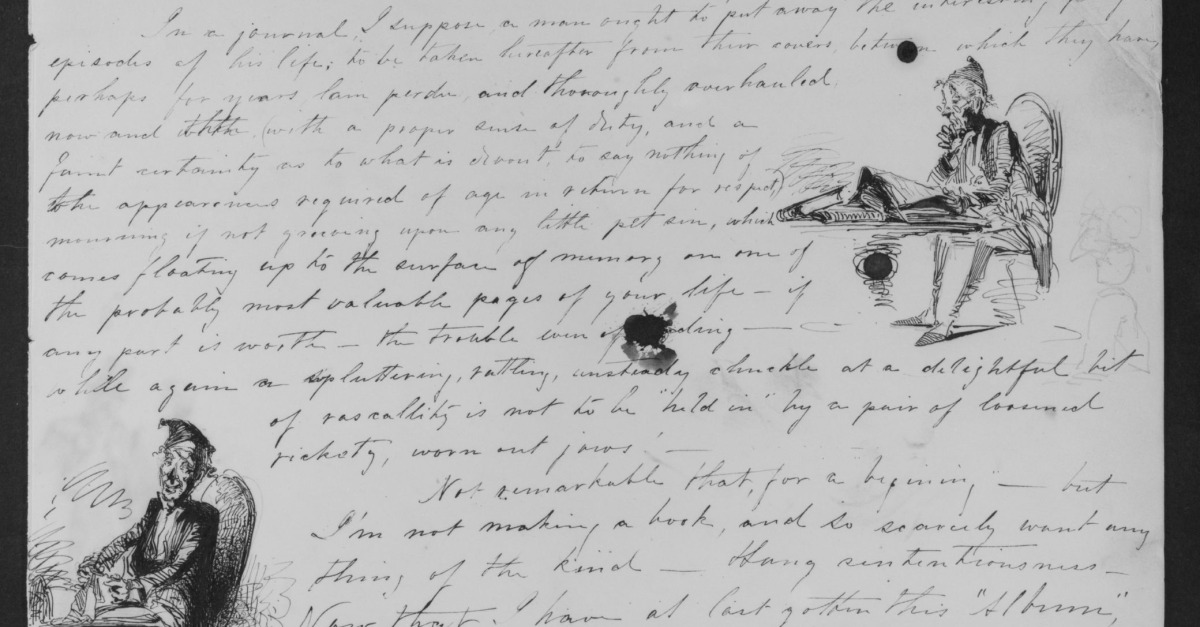 In a journal, I suppose, a man ought to put away the interesting
episodes of his life; to be taken hereafter from their covers, between which they have,
perhaps for years lain perdu, and thoroughly overhauled,
now and then, (with a proper sense of duty, and a
faint certainty as to what is devout, to say nothing of
the appearances required of age in return for respect)
mourning if not grieving upon any little pet sin, which
comes floating up to the surface of memory on one of
the probably most valuable pages of your life — if
any part is worth — the trouble even of reading —
while again a spluttering, rattling, unsteady chuckle at a delightful bit
of rascallity is not to be "held in" by a pair of loosened
rickety, worn out jaws! —
Not remarkable that, for a begining — but
I'm not making a book, and so scarcely want any
thing of the kind — Hang sintentiousness —
Now that I have at last gotten this "Album",